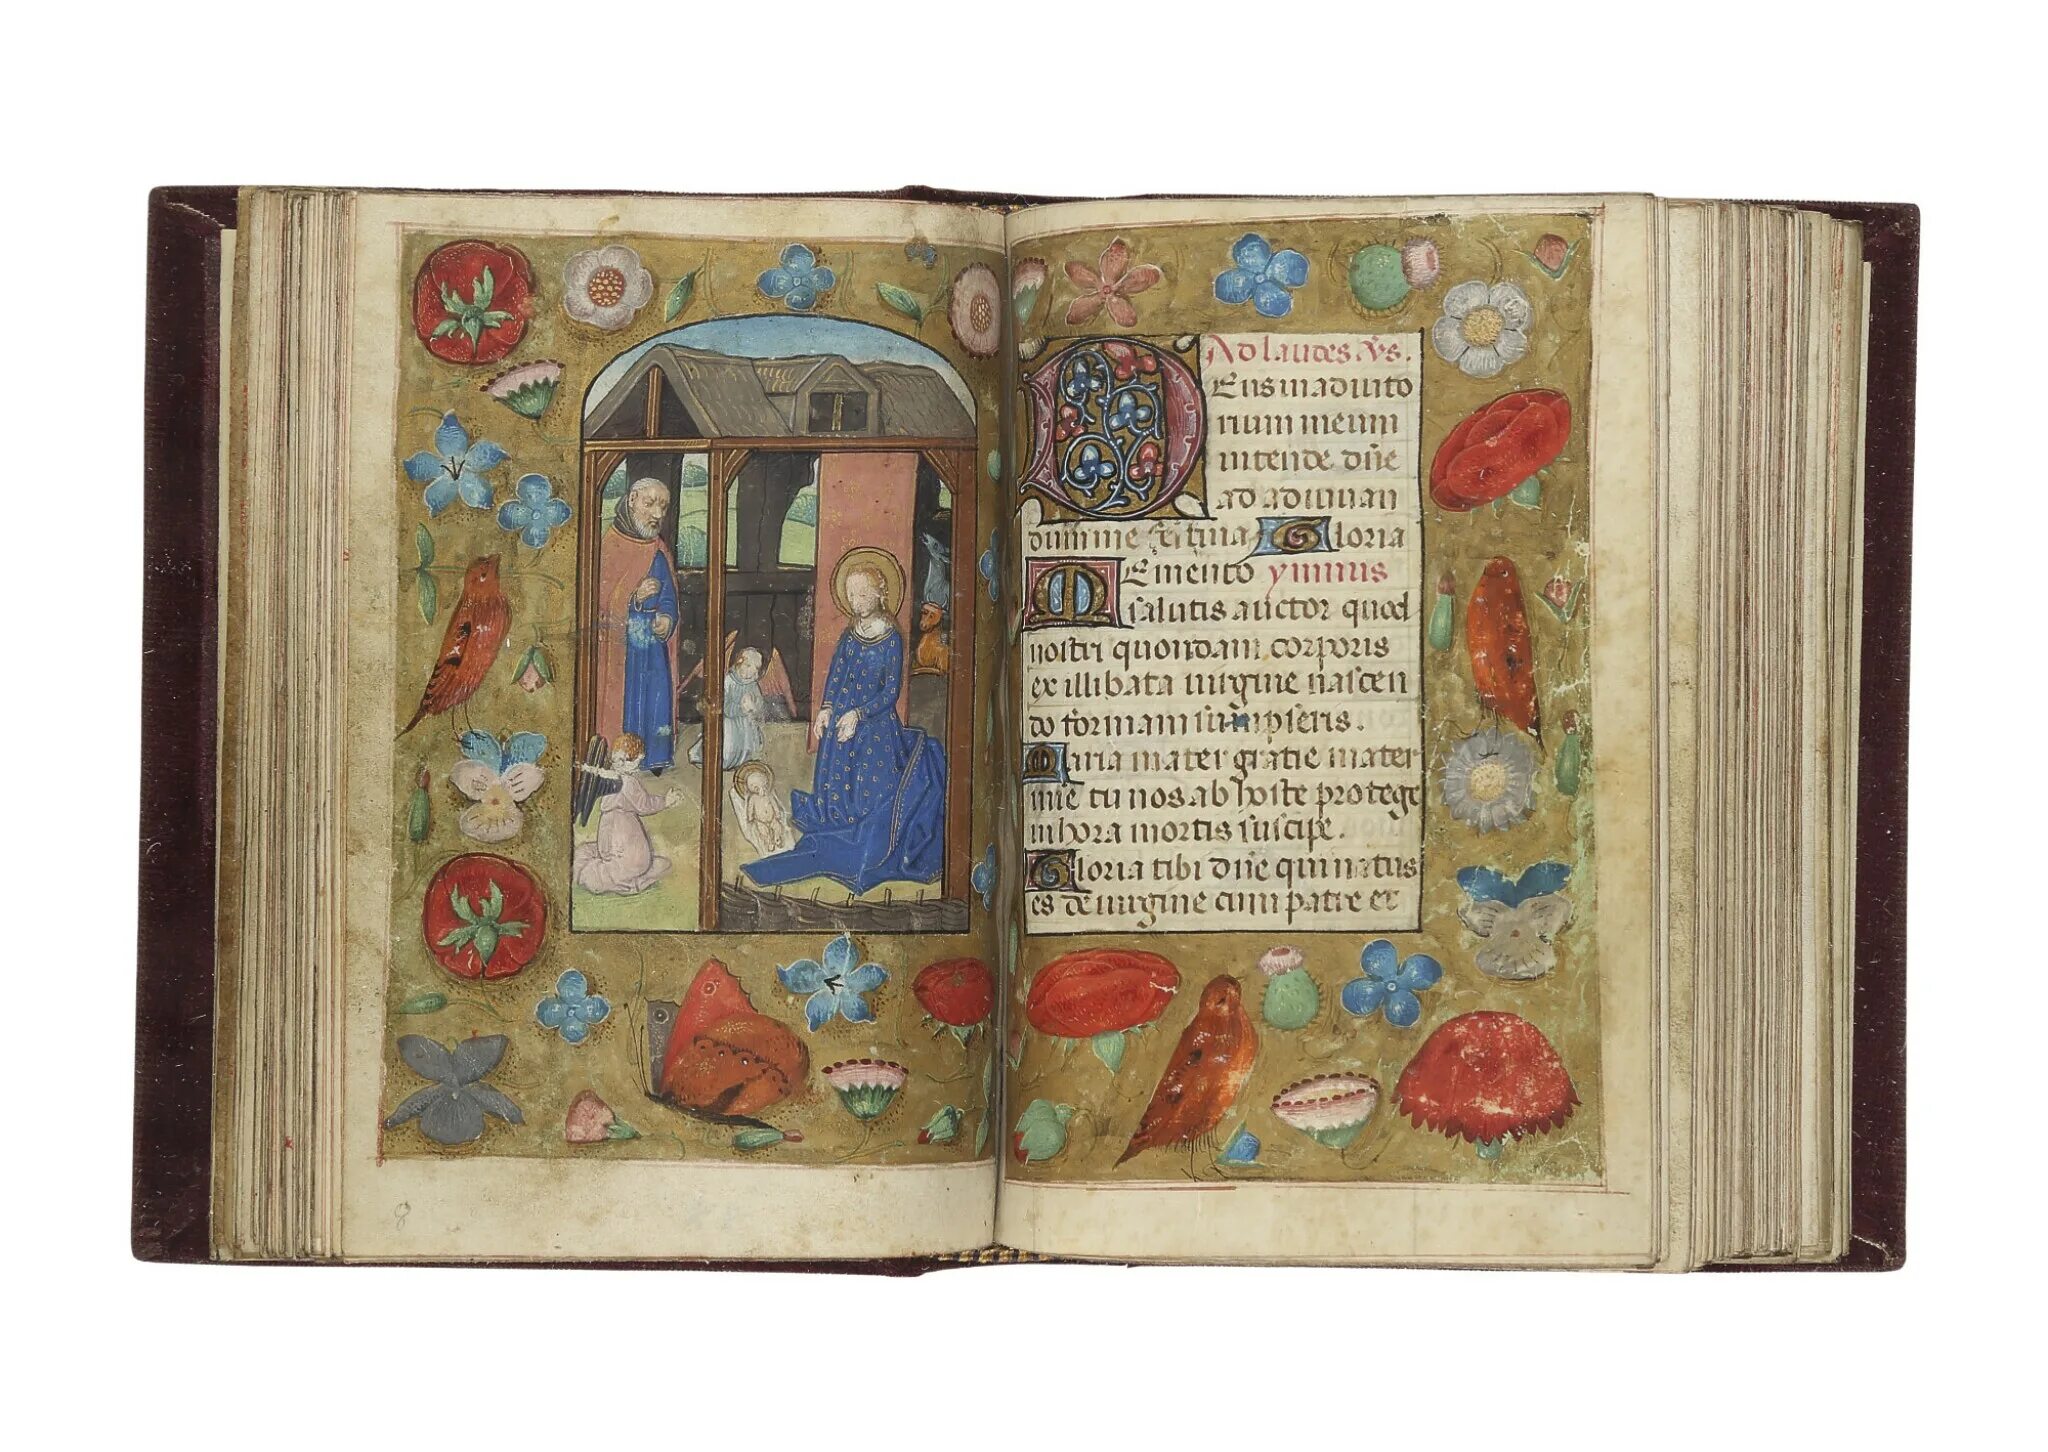 Ad laudes. V̄s.
Deus in adiuto
rium meum
intende dn̄e
ad adiuuan
dum me festina Gloria
Memento ymnus
salutis auctor quod
nostri quondam corporis
ex illibata uirgine nascen
do formam sumpseris.
Maria mater gratie mater
mie tu nos ab hoste protege
in hora mortis suscipe.
Gloria tibi dn̄e qui natus
es de uirgine cum patre et
8